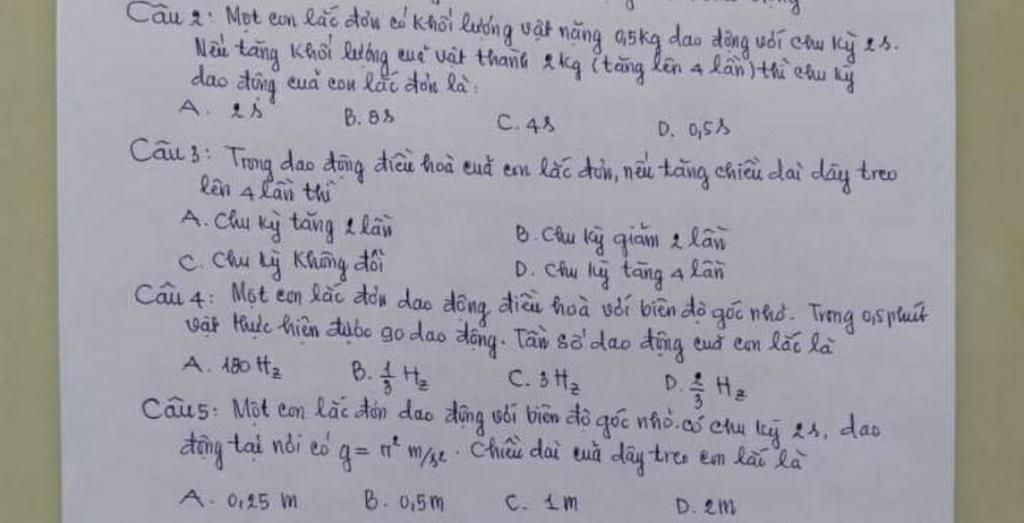 Câu 2: Một con lắc đơn có khối lượng vật nặng 0,5kg dao động với chu kỳ 2s.
Nếu tăng khối lượng cuả vật thành 2kg (tăng lên 4 lần) thì chu kỳ
dao động cuả con lắc đơn là:
A. 2s B. 8s C. 4s D. 0,5s
Câu 3: Trong dao động điều hoà cuả con lắc đơn, nếu tăng chiều dài dây treo
lên 4 lần thì
A. Chu kỳ tăng 2 lần B. Chu kỳ giảm 2 lần
C. Chu kỳ không đổi D. Chu kỳ tăng 4 lần
Câu 4: Một con lắc đơn dao động điều hoà với biên độ góc nhỏ. Trong 0,5 phút
vật thực hiện được 90 dao động. Tần số dao động cuả con lắc là
A. 180 Hz B. 1/3 Hz C. 3 Hz D. 2/3 Hz
Câu 5: Một con lắc đơn dao động với biên độ góc nhỏ. có chu kỳ 2s, dao
động tại nơi có g = π² m/s². Chiều dài cuả dây treo con lắc là
A. 0,25 m B. 0,5m C. 1m D. 2m